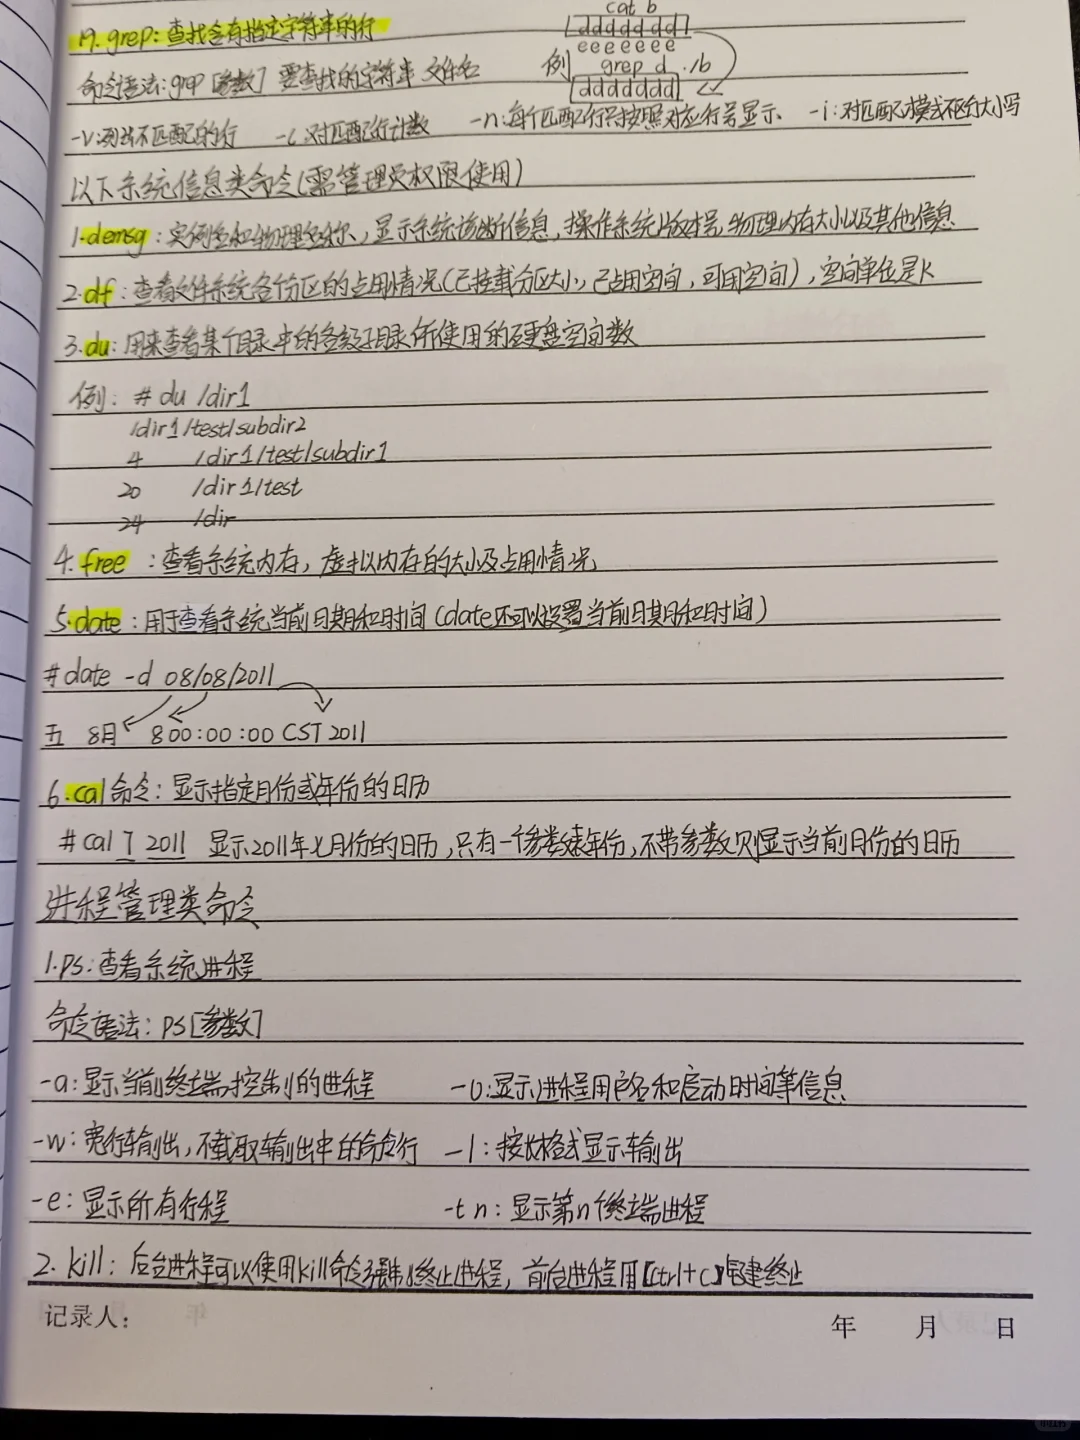 19.grep:查找含有指定字符串的行
cat b
ddddddd
eeeeeee
例 grep d ./b
ddddddd
命令语法:grep [参数] 要查找的字符串 文件名
-v:列出不匹配的行 -c:对匹配行计数 -n:每个匹配行只按照对应行号显示 -i:对匹配模式不区分大小写
以下系统信息类命令(需管理员权限使用)
1.demsg:实例名和物理名称,显示系统诊断信息,操作系统版本号,物理内存大小以及其他信息
2.df:查看文件系统各个分区的占用情况(已挂载分区大小,已占用空间,可用空间),空间单位是K
3.du:用来查看某个目录中的各级子目录所使用的硬盘空间数
例: # du /dir1
/dir1/test/subdir2
4 /dir1/test/subdir1
20 /dir1/test
24 /dir
4.free :查看系统内存,虚拟内存的大小及占用情况
5.date:用于查看系统当前日期和时间(date还可以设置当前日期和时间)
#date -d 08/08/2011
五 8月 8 00:00:00 CST 2011
6.cal命令:显示指定月份或年份的日历
#cal 7 2011 显示2011年七月份的日历,只有一个参数表年份,不带参数则显示当前月份的日历
进程管理类命令
1.ps:查看系统进程
命令语法:ps[参数]
-a:显示当前终端控制的进程 -u:显示进程用户名和启动时间等信息
-w:宽行输出,不截取输出中的命令行 -l:按长格式显示输出
-e:显示所有行程 -t n:显示第n个终端进程
2.kill:后台进程可以使用kill命令强制终止进程,前台进程用【ctrl+c】键终止
记录人: 年 月 日